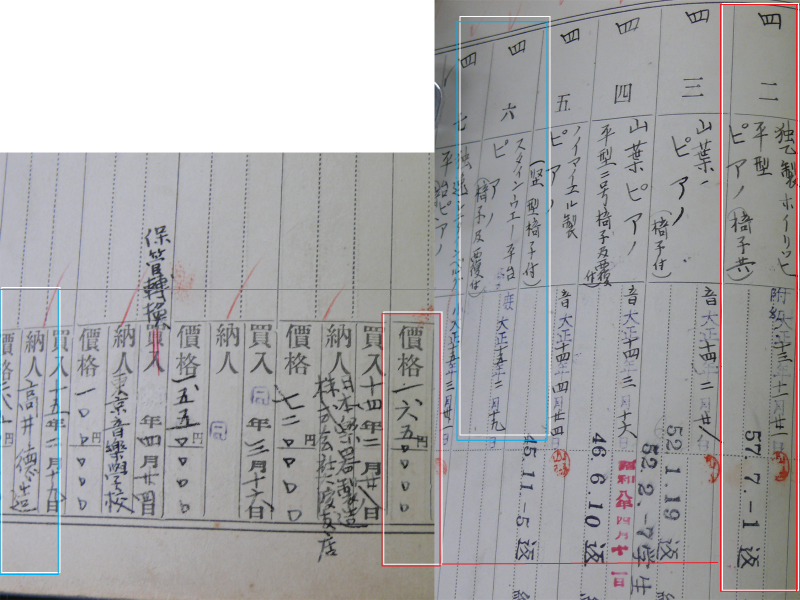 四二
独乙製ホイリッヒ
平型
ピアノ(椅子共)
57.7.-1 返
四三
山葉
ピアノ
(椅子付)
音 大正十四年二月廿八日
52.1.19 返
四四
山葉ピアノ
平型二号椅子及覆付
音 大正十四年三月十六日
52.2.-7 学生
昭和八年四月十一日
46.6.10 返
四五
ノイマイエル製
ピアノ
(竪型椅子付)
音 大正十四年四月廿四日
45.11.-5 返
四六
スタインウエー平台
ピアノ
(椅子及覆付)
大正十五年二月十九日
四七
平台ピアノ
價格 一、六五〇円〇〇
買入 十四年二月廿八日
納人 日本楽器製造
株式会社
支店
價格 七二〇円〇〇
買入 同年三月十六日
納人 同
價格 一、五五〇円〇〇
保管轉換
買入 年四月廿四日
納人 東京音樂学校
價格 一〇〇円〇〇
買入 十五年二月十九日
納人 高井徳造
價格